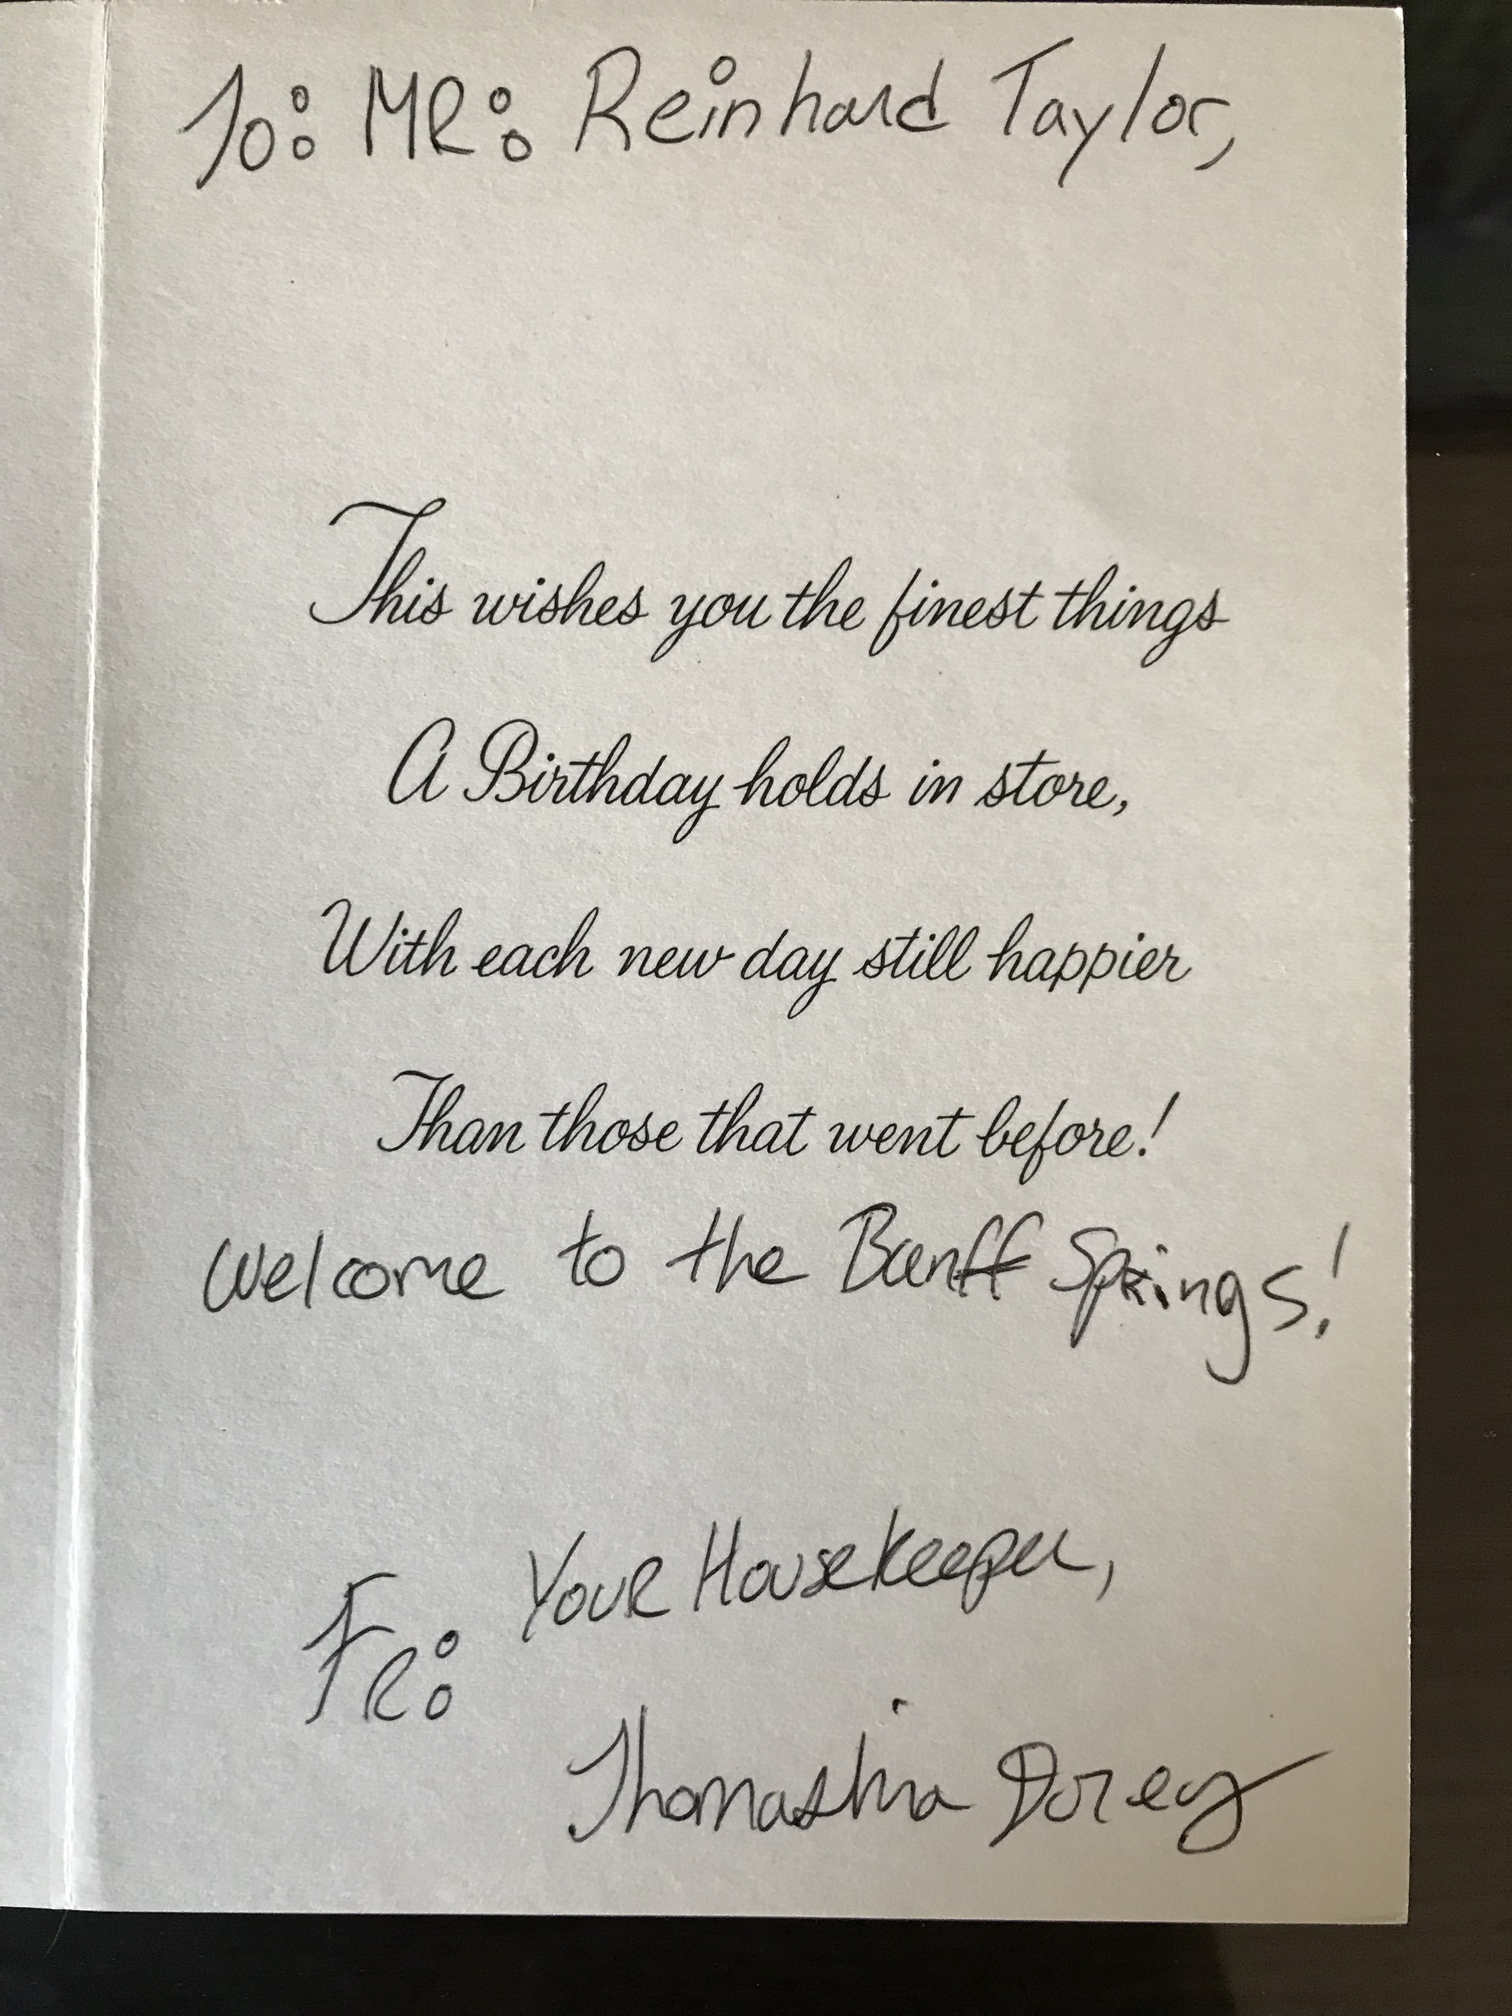 To: MR: Reinhard Taylor,
This wishes you the finest things
A Birthday holds in store,
With each new day still happier
Than those that went before!
Welcome to the Banff Springs!
Your Housekeeper,
FR:
Thomashia Dorey